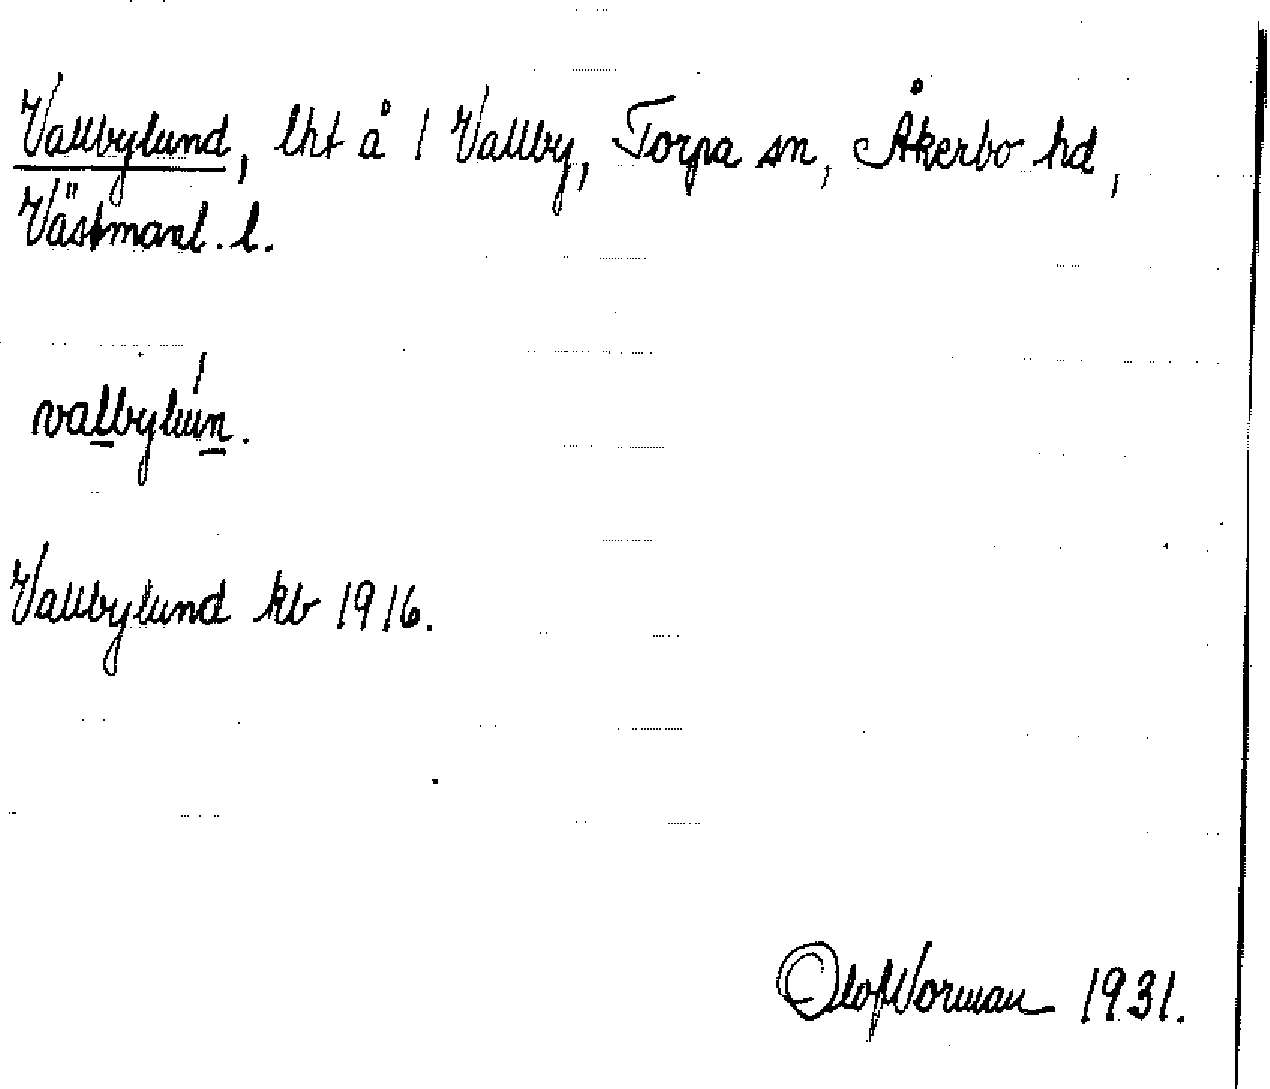 Vallbylund, lht å 1 Vallby, Torpa sn, Åkerbo hd,
Västmanl. l.
valbylún.
Vallbylund kb 1916.
Olof Norman 1931.